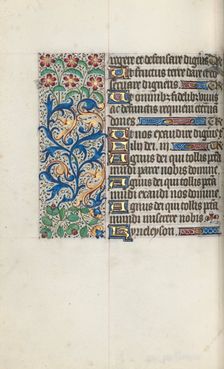 regere et defensare digneris
Ut fructus terre dare et con
servare digneris
Ut omnibus fidelibus
defunctis requiem eternam
dones
Ut nos exaudire digneris
Fili dei
Agnus dei qui tollis pcta
mundi parce nobis domine
Agnus dei qui tollis pcta
mundi exaudi nos domine
Agnus dei qui tollis pcta
mundi miserere nobis
Kyrieleyson